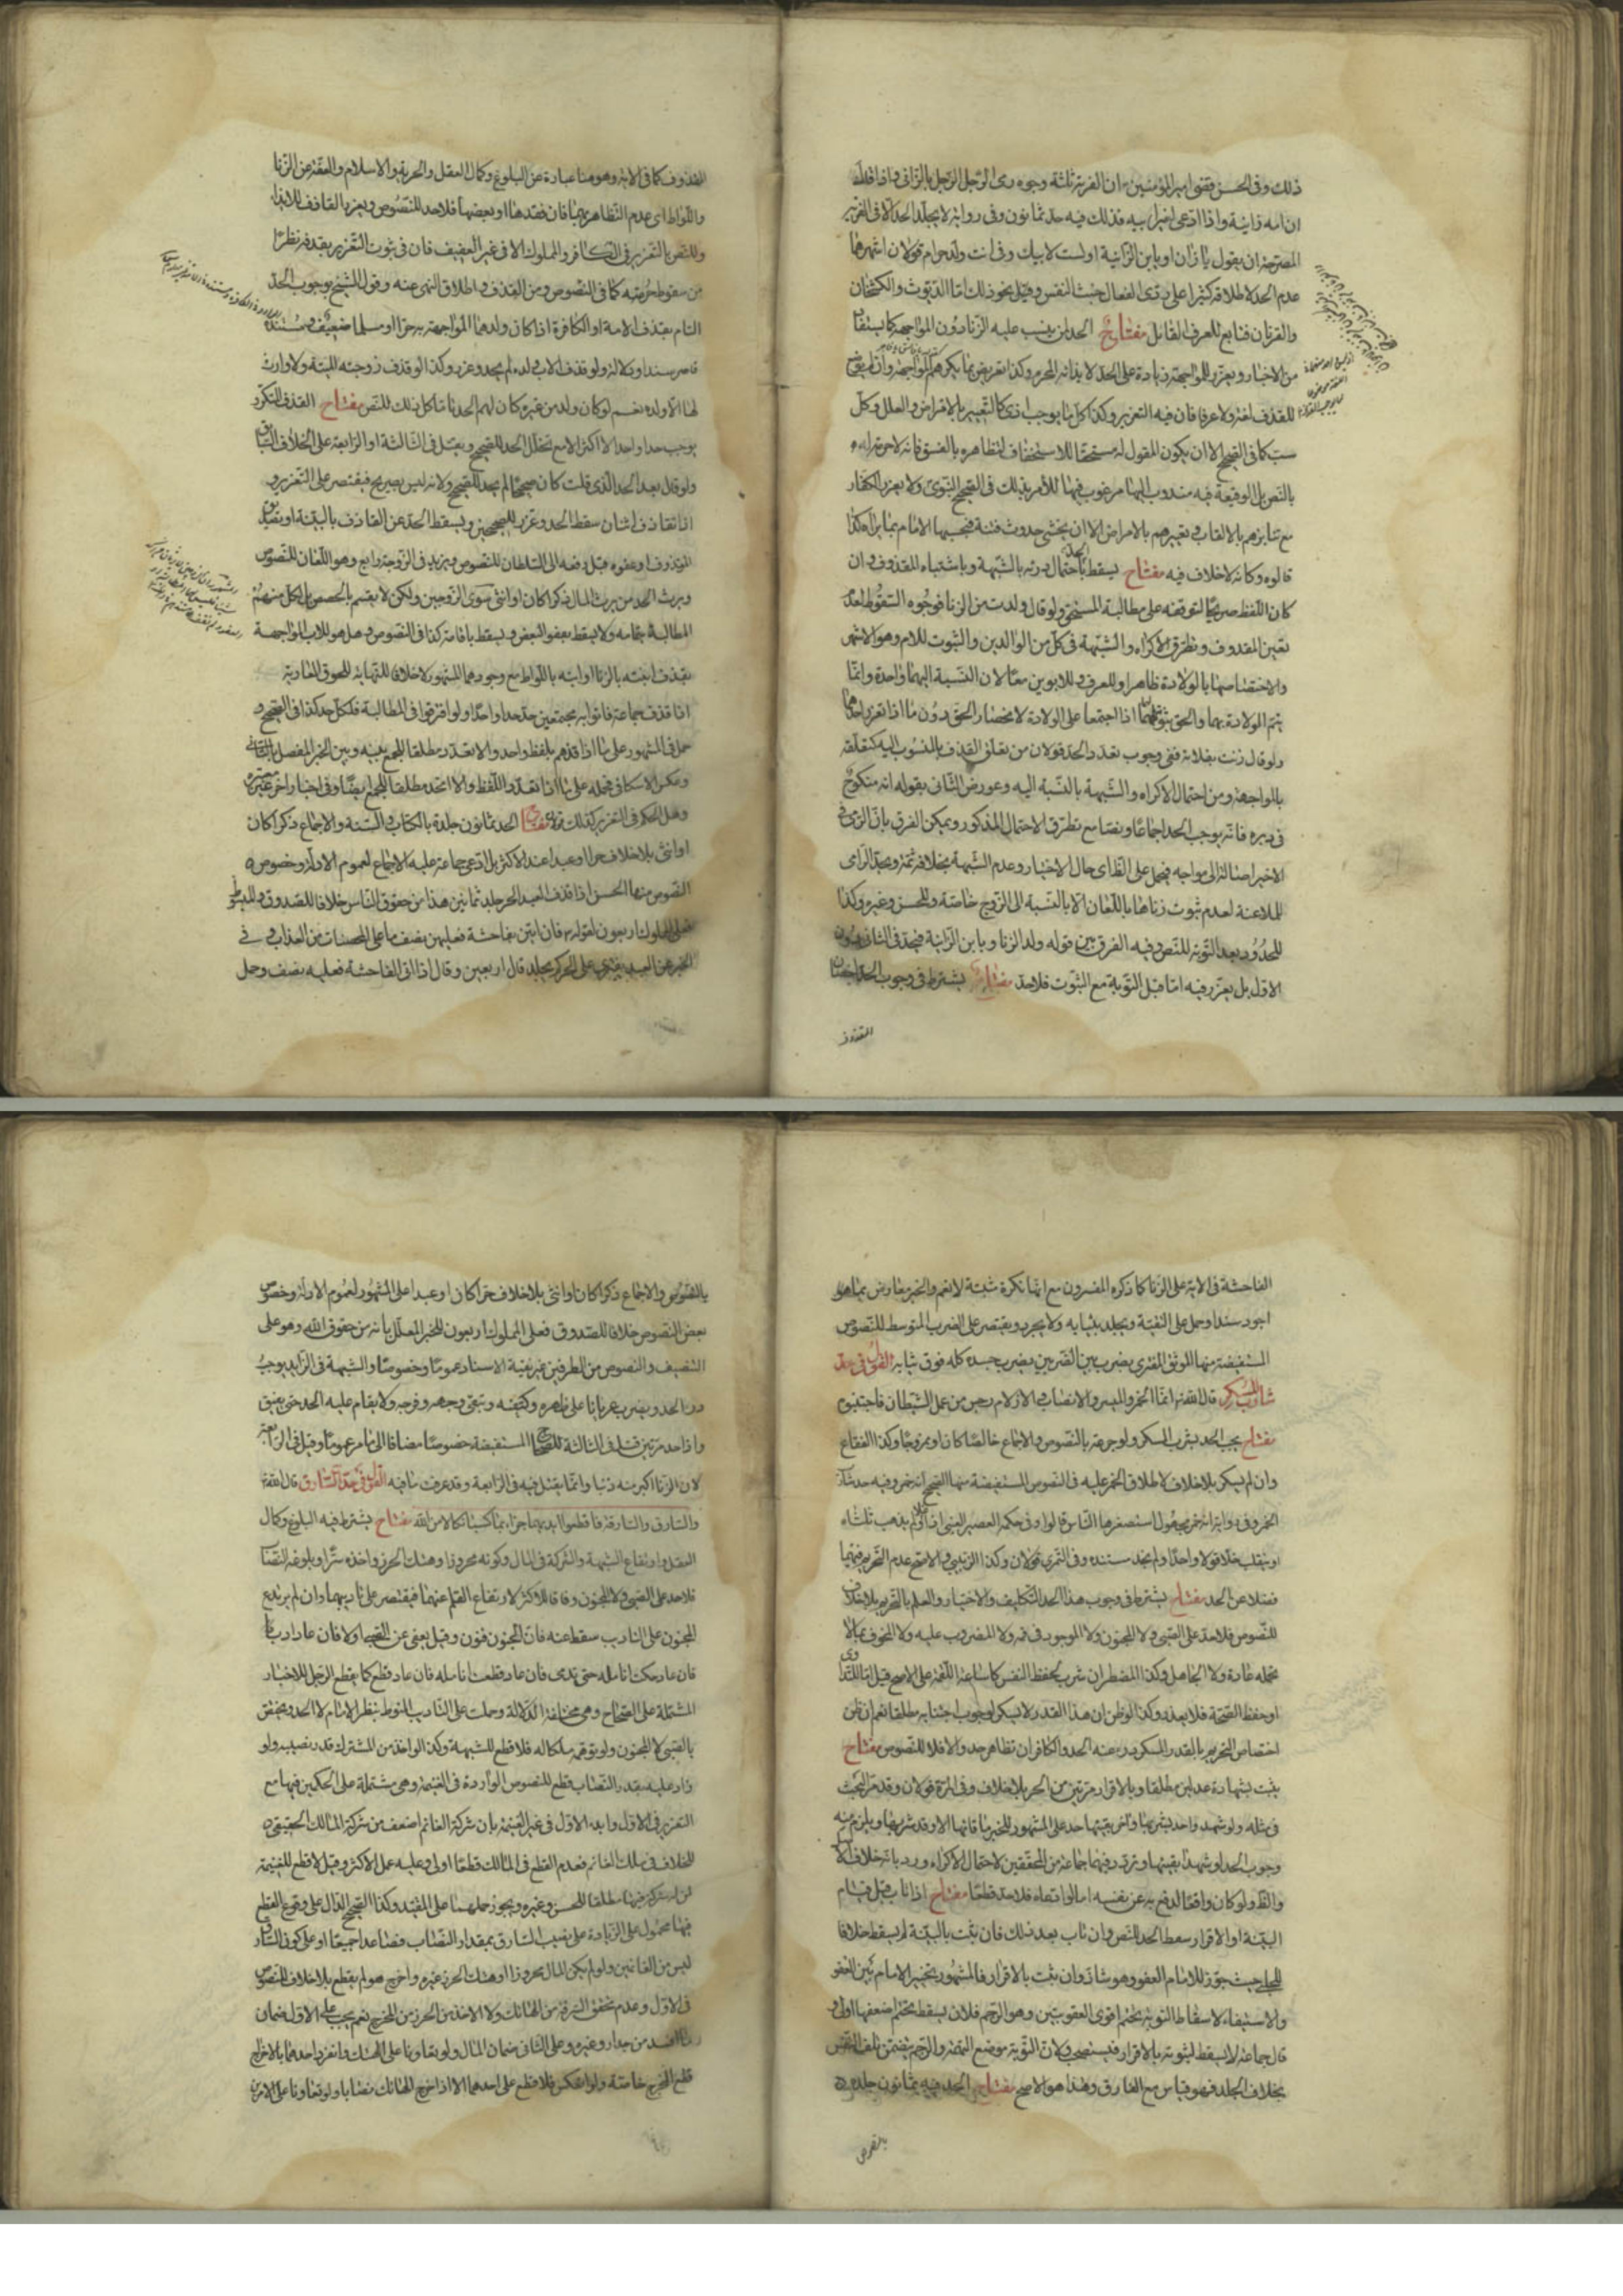 ذلك وفى الحسن قضى اميرالمؤمنين ان الفرية ثلثة وجوه رمى الرجل الرجل بالزانى واذا قال
ان امه زانية واذا ادعى لغير ابيه فذلك فيه حد ثمانون وفى رواية لا يجلد الحد الا فى الفرية
المصرحة ان يقول يا زان او يابن الزانية او لست لابيك وفى انت ولد حرام قولان اشهرهما
عدم الحد لاطلاقه كثيرا على ردى الفعال خبيث النفس وقيل نحو ذلك اما الديوث والكشخان
والقرنان فتابع للعرف القائل مفتاح الحد لمن ينسب عليه الزنا دون المواجهة كما يستفاد
من الاخبار ويعزر للمواجهة زيادة على الحد لايذائه المحرم وكذا تعريض بما يكرهه المواجهة وان لم يوضع
للقذف لغة ولا عرفا فان فيه التعزير وكذا كل ما يوجب اذى كالتعيير بالامراض والعلل وكل
سب كما فى الصحيح الا ان يكون المقول له مستحقا للاستخفاف لتظاهره بالفسق فانه لا حرمة له
بالنص بل الوقيعة فيه مندوب اليها مرغوب فيها للأمر بذلك فى الصحيح النبوى ولا يعزر الكفار
مع تنابزهم بالالقاب وتعييرهم بالامراض الا ان يخشى حدوث فتنة فيحسبها الامام بما يراه كذا
قالوه وكانه لا خلاف فيه مفتاح يسقط الحد باحتمال درئه بالشبهة وباشتباه المقذوف وان
كان اللفظ صريحا لتوقفه على مطالبة المستحق ولو قال ولدت من الزنا فوجوه السقوط لعدم
تعين المقذوف وتطرق الاكراه والشبهة فى كل من الوالدين والثبوت للام وهو الاشهر
والاختصاصها بالولادة ظاهرا وللعرف وللابوين معا لان النسبة اليهما واحدة وانما
يتم الولادة بهما والحق ثبوته لهما اذا اجتمعا على الولادة لانحصار الحق دون ما اذا تفرد احدهما
ولو قال زنت بفلانة ففى وجوب تعدد الحد قولان من تعلق القذف بالمنسوب اليه كتعلقه
بالمواجهة ومن احتمال الاكراه والشبهة بالنسبة اليه وعورض الثانى بقوله انه منكوح
فى دبره فانه يوجب الحد اجماعا ونصا مع تطرق الاحتمال المذكور ويمكن الفرق بان الرمى فى
الاخير اصالة الى مواجه فيحمل على الظاهر حال الاختيار وعدم الشبهة بخلافه ثمة ويحد الرامى
الملاعنة لعدم ثبوت زناها باللعان الا بالنسبة الى الزوج خاصة وللحسن وغيره وكذا
المحدود بعد التوبة للنص وفيه الفرق بين قوله ولد الزنا ويابن الزانية فيحد فى الثانى دون
الاول بل يعزر فيه اما قبل التوبة مع الثبوت فلا حد مفتاح يشترط فى وجوب الحد احصان
المقذوف
المقذوف كما فى الاية وهو هنا عبارة عن البلوغ وكمال العقل والحرية والاسلام والعفة عن الزنا
واللواط اى عدم التظاهر بهما فان فقدها او بعضها فلا حد للنصوص ويعزر القاذف للايذاء
وللنص بالتعزير فى الكافر والمملوك الا فى غير العفيف فان فى ثبوت التعزير بقذفه نظرا
من سقوط حرمته كما فى النصوص ومن القذف واطلاق النهى عنه وقول الشيخ بوجوب الحد
التام بقذف الامة او الكافرة اذا كان ولدهما المواجهة به حرا او مسلما ضعيف ومستنده
قاصر سندا ودلالة ولو قذف الاب ولده لم يحد وعزر وكذا لو قذف زوجته الميتة ولا وارث
لها الا ولده نعم لو كان ولد من غيره كان لهم الحد تاما كل ذلك للنص مفتاح القذف المتكرر
يوجب حدا واحدا لا اكثر الا مع تخلل الحد للصحيح ويقتل فى الثالثة او الرابعة على الخلاف السابق
ولو قال بعد الحد الذى قلت كان صحيحا لم يحد للصحيح ولانه ليس بصريح فيقتصر على التعزير و
اذا تقاذف اثنان سقط الحد وعزرا للصحيحين ويسقط الحد عن القاذف بالبينة او تصديق
المقذوف او عفوه قبل رفعه الى السلطان للنصوص ويزيد فى الزوجة رابع وهو اللعان للنصوص
ويرث الحد من يرث المال ذكرا كان او انثى سوى الزوجين ولكن لا يقسم بالحصص بل لكل منهم
المطالبة بتمامه ولا يسقط بعفو البعض ويسقط باقامته كذا فى النصوص وهل هو للاب المواجهة
بقذف ابنته بالزنا او ابنه باللواط مع وجودهما المشهور لا خلافا للنهاية للحوق العار به
اذا قذف جماعة فاتوا به مجتمعين حد حدا واحدا ولو افترقوا فى المطالبة فلكل حد كذا فى الصحيح و
حمل فى المشهور على ما اذا قذفهم بلفظ واحد والا تعدد مطلقا للجمع بينه وبين الخبر المفصل بالثانى
وعكس الاسكافى فحمله على ما اذا تعدد اللفظ والا اتحد مطلقا للجمع ايضا وفى اخبار اخر معتبرة
وهل الحكم فى التعزير كذلك مفتاح الحد ثمانون جلدة بالكتاب والسنة والاجماع ذكرا كان
او انثى بلا خلاف حرا او عبدا عند الاكثر بل ادعى جماعة عليه الاجماع لعموم الادلة وخصوص
النصوص منها الحسن اذا قذف العبد الحر جلد ثمانين هذا من حقوق الناس خلافا للصدوق والمبسوط
فعلى المملوك اربعون لقوله فان اتين بفاحشة فعليهن نصف ما على المحصنات من العذاب وفى
الخبر عن العبد يفترى على الحر كم يجلد قال اربعين وقال اذا اتى الفاحشة فعليه نصف وحمل
الفاحشة فى الاية على الزنا كما ذكره المفسرون مع انها نكرة مثبتة لا تعم والخبر معارض بما هو
اجود سندا وحمل على التقية ويجلد بثيابه ولا يجرد ويقتصر على الضرب المتوسط للنصوص
المستفيضة منها الموثق المفترى يضرب بين الضربين يضرب جسده كله فوق ثيابه القول فى حد
شارب المسكر قال الله انما الخمر والميسر والانصاب والازلام رجس من عمل الشيطان فاجتنبوه
مفتاح يجب الحد بشرب المسكر ولو جرعة بالنصوص والاجماع خالصا كان او ممزوجا وكذا الفقاع
وان لم يسكر بلا خلاف لاطلاق الخمر عليه فى النصوص المستفيضة منها الصحيح انه خمر وفيه حد شارب
الخمر وفى رواية انه خمر مجهول استصغرها الناس قالوا وفى حكمه العصير العنبى اذا غلا ولم يذهب ثلثاه
او ينقلب خلا قولا واحدا ولم نجد مستنده وفى التمرى قولان وكذا الزبيبى والاصح عدم التحريم فيهما
فضلا عن الحد مفتاح يشترط فى وجوب هذا الحد التكليف والاختيار والعلم بالتحريم بلا خلاف
للنصوص فلا حد على الصبى ولا المجنون ولا الموجور فى فمه ولا المضروب عليه ولا المخوف بما لا
يتحمله عادة ولا الجاهل وكذا المضطر ان شرب لحفظ النفس كاساغة اللقمة على الاصح قيل اما للتداوى
او حفظ الصحة فلا يعذر وكذا لو ظن ان هذا القدر لا يسكر لوجوب اجتنابه مطلقا نعم ان ظن
اختصاص التحريم بالقدر المسكر درء عنه الحد والكافر ان تظاهر حد والا فلا للنصوص مفتاح
يثبت بشهادة عدلين مطلقا وبالاقرار مرتين من الحر بلا خلاف وفى المرة قولان وقد مر البحث
فى مثله ولو شهد واحد بشربها واخر بقيئها حد على المشهور للخبر ما قائها الا وقد شربها ويلزم منه
وجوب الحد لو شهدا بقيئها وتردد فيهما جماعة من المحققين لاحتمال الاكراه ورد بانه خلاف الاصل
والظ ولو كان واقعا لدفع به عن نفسه اما لو ادعاه فلا حد قطعا مفتاح اذا تاب قبل قيام
البينة او الاقرار سقط الحد للنص وان تاب بعد ذلك فان ثبت بالبينة لم يسقط خلافا
للحلبى حيث جوز للامام العفو وهو شاذ وان ثبت بالاقرار فالمشهور تخيير الامام بين العفو
والاستيفاء لاسقاط التوبة تحتم اقوى العقوبتين وهو الرجم فلان يسقط تحتم اضعفها اولى و
قال جماعة لا يسقط لثبوته بالاقرار فيستصحب ولان التوبة موضع التهمة والرجم يتضمن تلف النفس
بخلاف الجلد فهو قياس مع الفارق وهذا هو الاصح مفتاح الحد فيه ثمانون جلدة
بالنصوص
بالنصوص والاجماع ذكرا كان او انثى بلا خلاف حرا كان او عبدا على المشهور لعموم الادلة وخصوص
بعض النصوص خلافا للصدوق فعلى المملوك اربعون للخبر المعلل بانه من حقوق الله وهو على
التنصيف والنصوص من الطرفين غير نقية الاسناد عموما وخصوصا والشبهة فى الزايد يوجب
درء الحد ويضرب عريانا على ظهره وكتفيه ويتقى وجهه وفرجه ولا يقام عليه الحد حتى يفيق
واذا حد مرتين قتل فى الثالثة للصحاح المستفيضة خصوصا مضافا الى ما مر عموما وقيل فى الرابعة
لان الزنا اكبر منه ذنبا وانما يقتل فيه فى الرابعة وقد عرفت ما فيه القول فى حد السارق قال الله
والسارق والسارقة فاقطعوا ايديهما جزاء بما كسبا نكالا من الله مفتاح يشترط فيه البلوغ وكمال
العقل وارتفاع الشبهة والشركة فى المال وكونه محروزا وهتك الحرز واخذه سرا وبلوغه النصاب
فلا حد على الصبى ولا المجنون وفاقا للاكثر لارتفاع القلم عنهما فيقتصر على تاديبهما وان لم يرتدع
المجنون على التاديب سقط عنه فان الجنون فنون وقيل يعفى عن الصبى اولا فان عاد ادب
فان عاد حكت انامله حتى تدمى فان عاد قطعت انامله فان عاد قطع كما يقطع الرجل للاخبار
المشتملة على الصحاح وهى مختلفة الدلالة وحملت على التاديب المنوط بنظر الامام لا الحد ويختص
بالصبى لا المجنون ولو توهمه ملكا له فلا قطع للشبهة وكذا لو اخذ من المشترك قدر نصيبه ولو
زاد عليه بقدر النصاب قطع للنصوص الواردة فى الغنيمة وهى مشتملة على الحكمين فيها مع
التعزير فى الاول وايد الاول فى غير الغنيمة بان شركة الغانم اضعف من شركة المالك الحقيقى
للخلاف فى ملك الغانم فعدم القطع فى المالك قطعا اولى وعليه عمل الاكثر وقيل لا قطع للغنيمة
لمن له شركة فيها مطلقا للحسن وغيره ويجوز حملهما على المقيد وكذا الصحيح الدال على وقوع القطع
فيها محمول على الزيادة على نصيب السارق بمقدار النصاب فصاعدا جمعا او على كون السارق
ليس من الغانمين ولو لم يكن المال محروزا او هتك الحرز غيره واخرج هو لم يقطع بلا خلاف للنصوص
فى الاول وعدم تحقق السرقة من الهاتك ولا الاخذ من الحرز من المخرج نعم يجب على الاول ضمان
ما افسد من جدار وغيره وعلى الثانى ضمان المال ولو تعاونا على الهتك وانفرد احدهما بالاخراج
قطع المخرج خاصة ولو انعكس فلا قطع على احدهما الا اذا اخرج الهاتك نصابا ولو تعاونا على الامرين